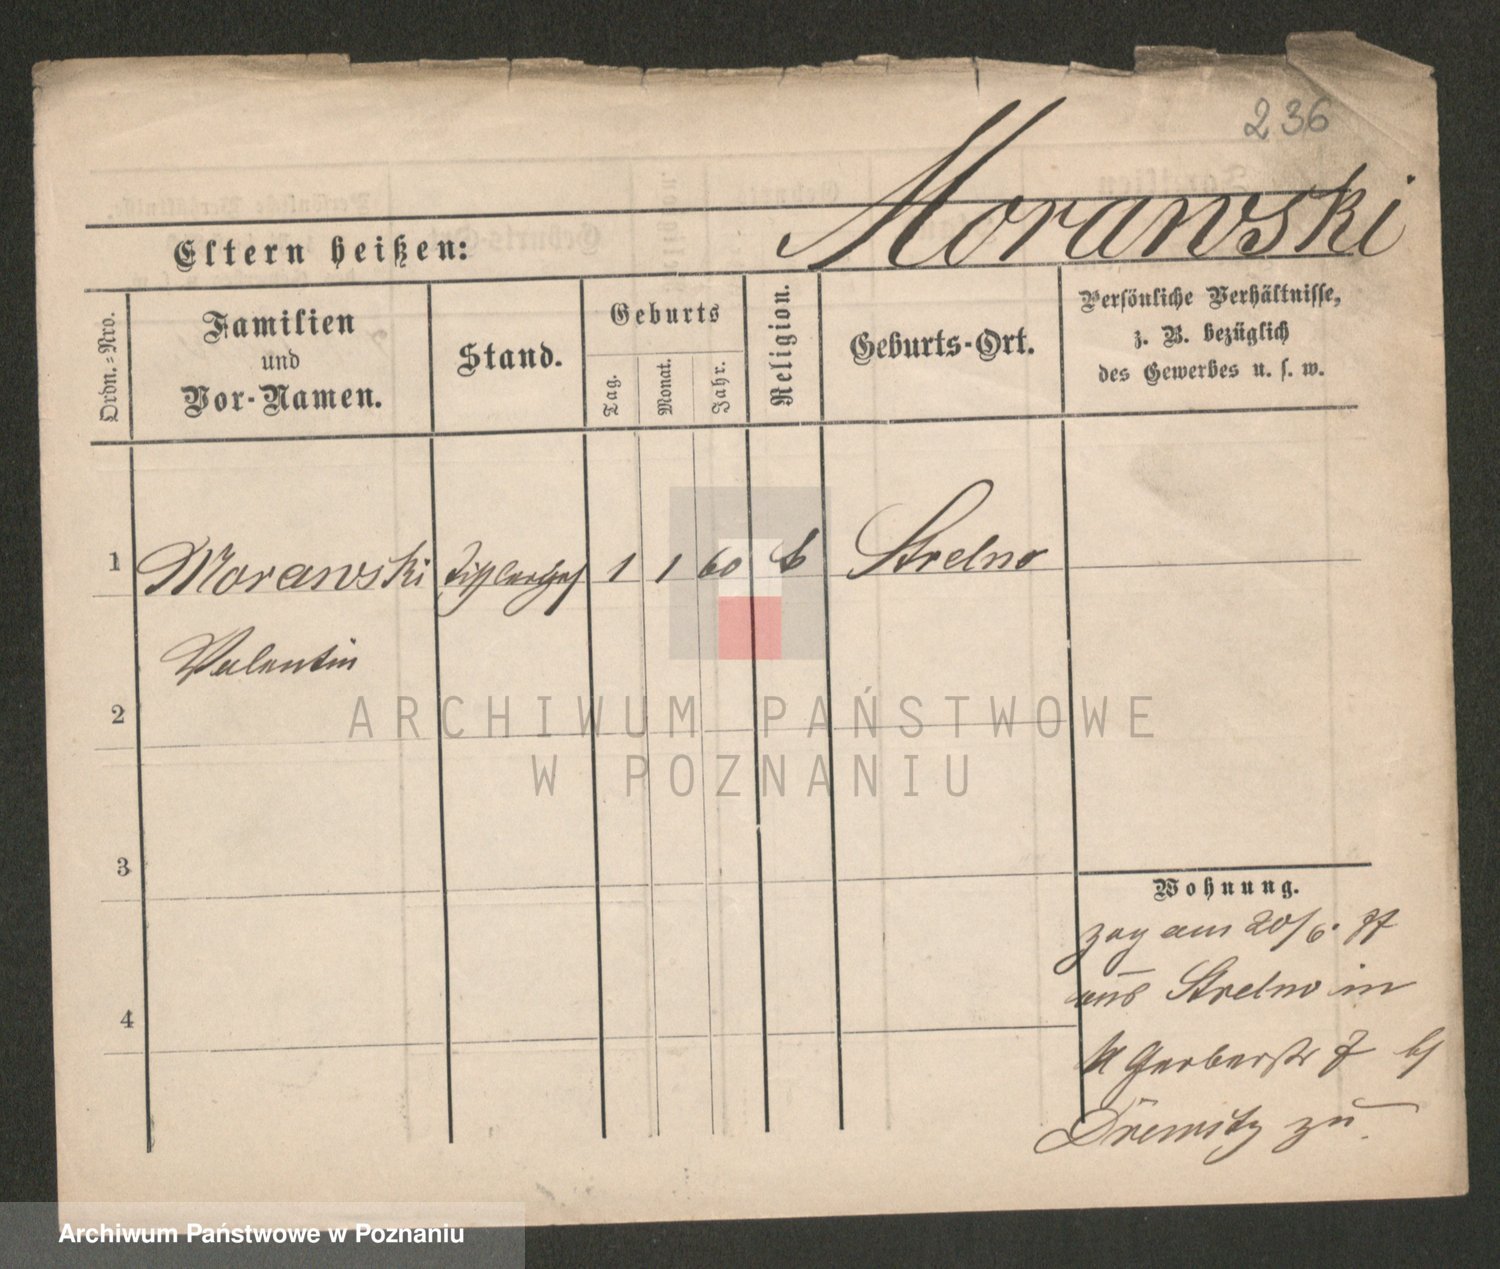 236
Morawski
Eltern heißen:
Ordn.-Nro.
Familien
und
Vor-Namen.
Stand.
Geburts
Tag.
Monat.
Jahr.
Religion.
Geburts-Ort.
Persönliche Verhältnisse,
z. B. bezüglich
des Gewerbes u. s. w.
1
Morawski
1 1 60
Strelno
Valentin
2
3
4
ARCHIWUM PAŃSTWOWE
W POZNANIU
Wohnung.
zog am 20/6. 77
aus Strelno in
Gerberstr 7 bj
zu
Archiwum Państwowe w Poznaniu